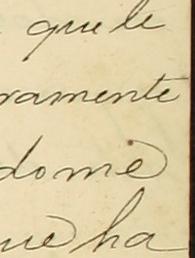 que le
ramente
dome
ue ha